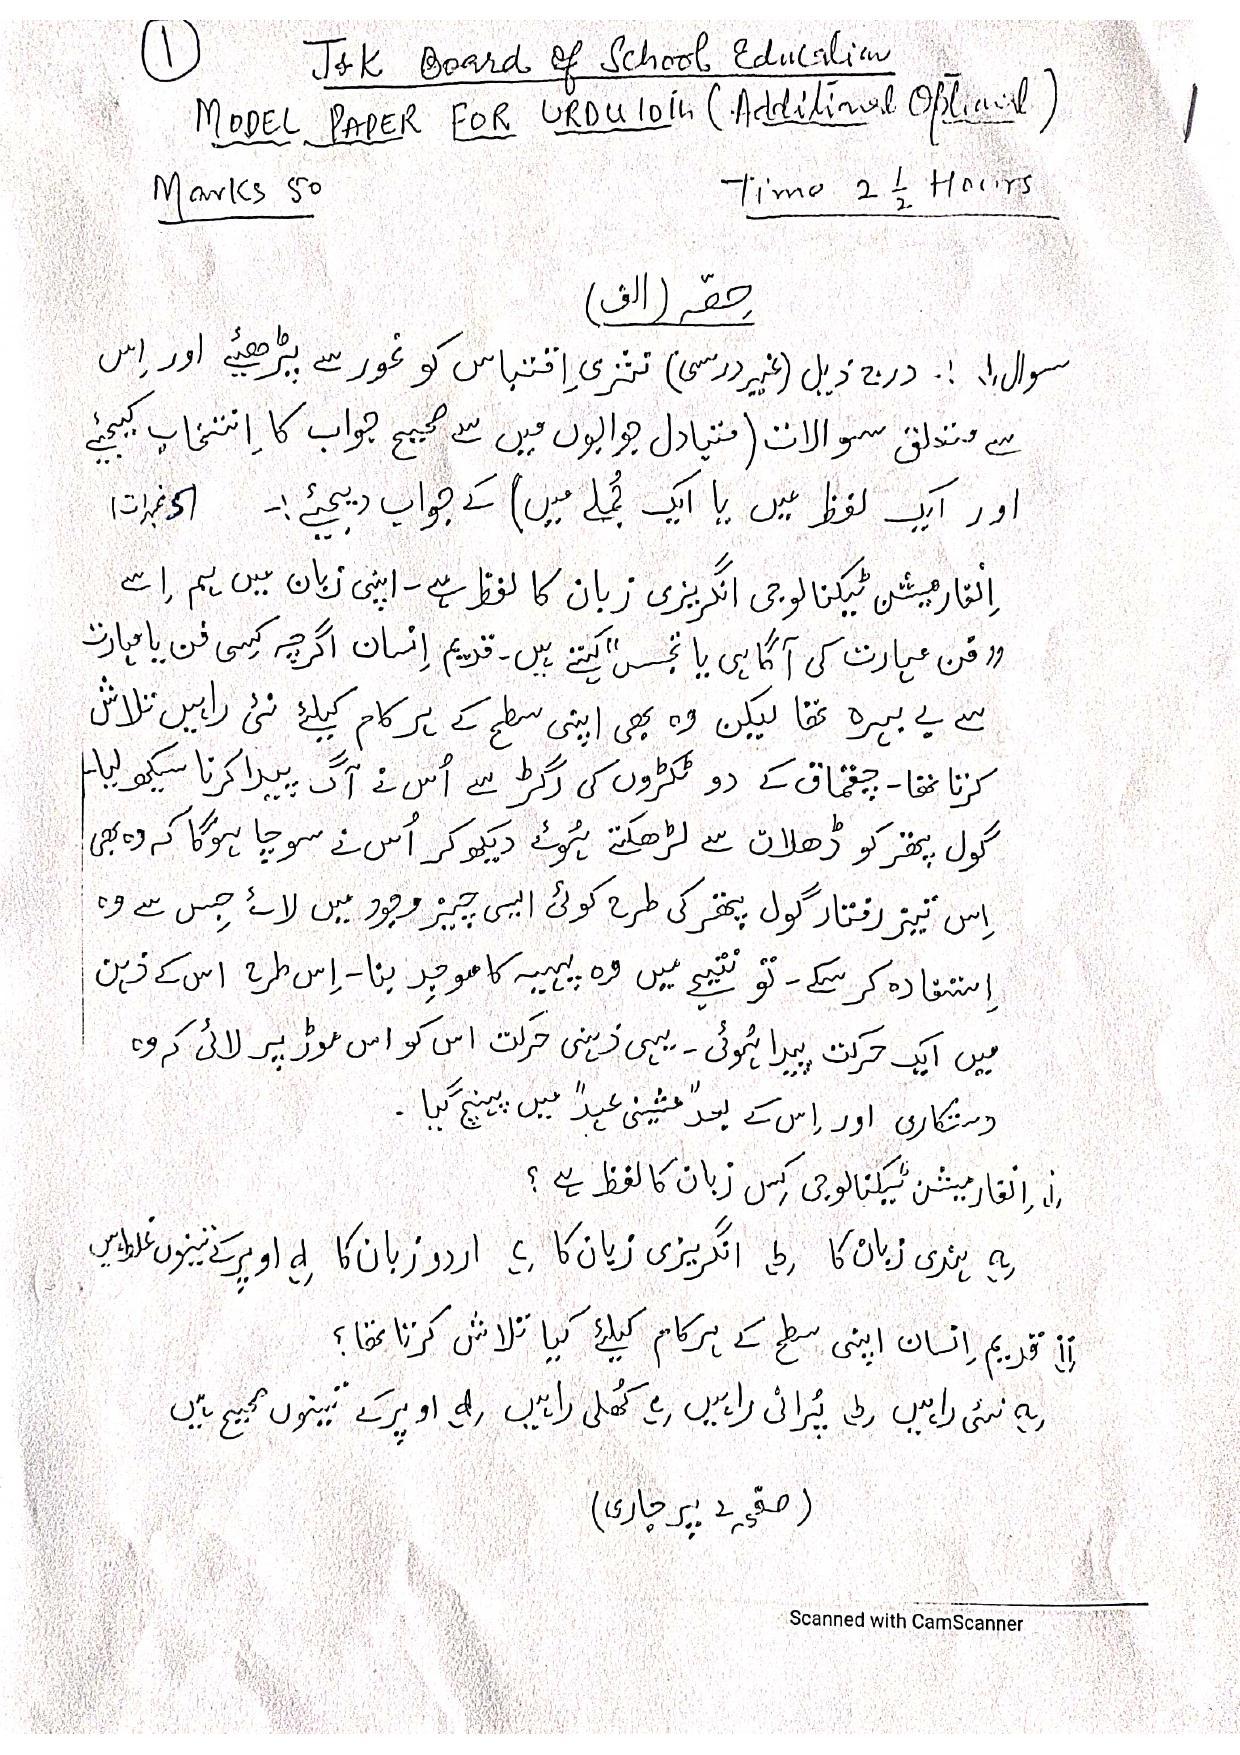 ①
J&K Board Of School Education
MODEL PAPER FOR URDU 10th (Additional Optional)
Marks 50 Time 2 1/2 Hours
حصّہ (الف)
سوال۱ :. درج ذیل (غیر درسی) نثری اِقتباس کو غور سے پڑھیئے اور اِس
سے متعلق سوالات (متبادل جوابوں میں سے صحیح جواب کا اِنتخاب کیجئے
اور ایک لفظ میں یا ایک جُملے میں) کے جواب دیجئے :- (5نمبرات)
اِنفارمیشن ٹیکنالوجی انگریزی زبان کا لفظ ہے۔ اپنی زبان میں ہم اِسے
”فن مہارت کی آگاہی یا تجسس“ کہتے ہیں۔ قدیم اِنسان اگرچہ کِسی فن یا مہارت
سے بے بہرہ تھا لیکن وہ بھی اپنی سطح کے ہر کام کیلئے نئی راہیں تلاش
کرتا تھا۔ چقماق کے دو ٹکڑوں کی رگڑ سے اُس نے آگ پیدا کرنا سیکھ لیا۔
گول پتھر کو ڈھلان سے لڑھکتے ہُوئے دیکھ کر اُس نے سوچا ہوگا کہ وہ بھی
اِس تیز رفتار گول پتھر کی طرح کوئی ایسی چیز وجود میں لائے جِس سے وہ
اِستفادہ کر سکے۔ تو نتیجے میں وہ پہیہ کا موجِد بنا۔ اِس طرح اس کے ذہن
میں ایک حرکت پیدا ہُوئی۔ یہی ذہنی حرکت اس کو اس موڑ پر لائی کہ وہ
دستکاری اور اِس کے بعد ”مشینی عہد“ میں پہنچ گیا۔
i. اِنفارمیشن ٹیکنالوجی کِس زبان کا لفظ ہے؟
a ہندی زبان کا b انگریزی زبان کا c اردو زبان کا d اوپر کے تینوں غلط ہیں
ii قدیم اِنسان اپنی سطح کے ہر کام کیلئے کیا تلاش کرتا تھا؟
a نئی راہیں b پُرانی راہیں c کُھلی راہیں d اوپر کے تینوں صحیح ہیں
(صفحہ 2 پر جاری)
Scanned with CamScanner